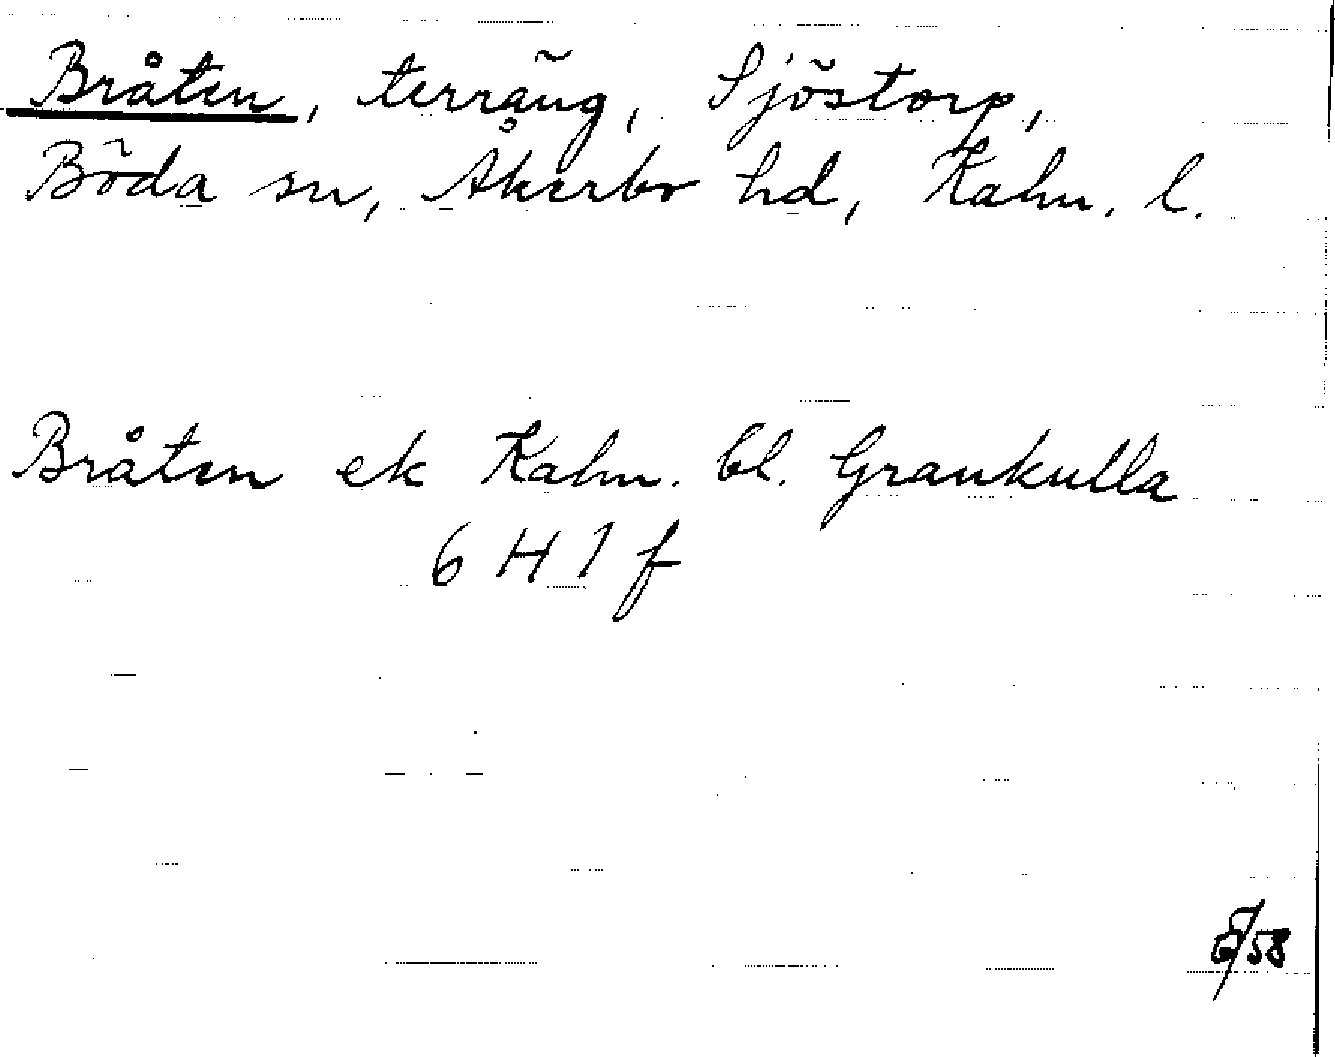 Bråten, terräng, Sjöstorp,
Böda sn, Åkerbo hd, Kalm. l.
Bråten ek Kalm. bl. Grankulla
6 H 1 f
/58